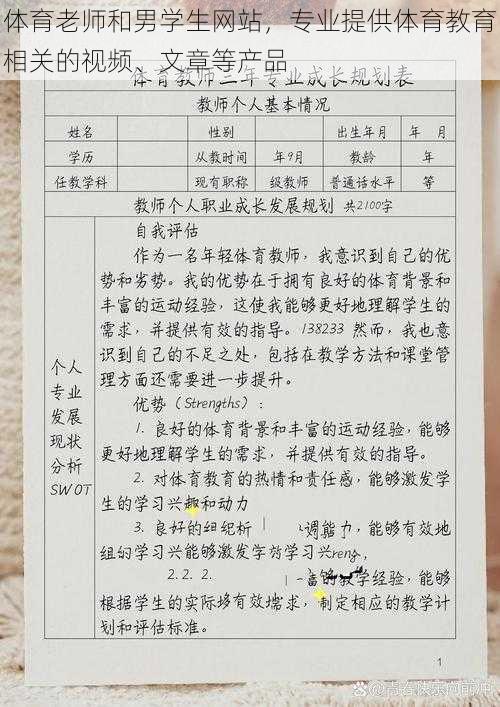 体育老师和男学生网站，专业提供体育教育
相关的视频、文章等产品
体育教师三年专业成长规划表
教师个人基本情况
姓名 性别 出生年月 年 月
学历 从教时间 年9月 教龄 年
任教学科 现有职称 级教师 普通话水平 等
教师个人职业成长发展规划 共2100字
个人
专业
发展
现状
分析
SWOT
自我评估
作为一名年轻体育教师，我意识到自己的优
势和劣势。我的优势在于拥有良好的体育背景和
丰富的运动经验，这使我能够更好地理解学生的
需求，并提供有效的指导。138233 然而，我也意
识到自己的不足之处，包括在教学方法和课堂管
理方面还需要进一步提升。
优势（Strengths）：
1. 良好的体育背景和丰富的运动经验，能够
更好地理解学生的需求，并提供有效的指导。
2. 对体育教育的热情和责任感，能够激发学
生的学习兴趣和动力
3. 良好的组织 调能力，能够有效地
组 学习兴能够激发学 学习兴reng，
2.2. 2. 富 教学经验，能够
根据学生的实际 有效地需求，制定相应的教学计
划和评估标准。
1
@青春快乐向前冲